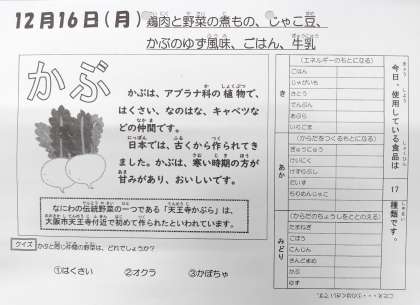 12月16日(月)
鶏肉と野菜の煮もの、じゃこ豆、
かぶのゆず風味、ごはん、牛乳
かぶ
かぶは、アブラナ科の植物で、
はくさい、なのはな、キャベツな
どの仲間です。
日本では、古くから作られてき
ました。かぶは、寒い時期の方が
甘みがあり、おいしいです。
なにわの伝統野菜の一つである「天王寺かぶら」は、
大阪市天王寺付近で初めて作られたといわれています。
クイズ かぶと同じ仲間の野菜は、どれでしょうか?
①はくさい ②オクラ ③かぼちゃ
今日、使用している食品は 17 種類です。
き
(エネルギーのもとになる)
ごはん
じゃがいも
さとう
でんぷん
あぶら
いりごま
あか
(からだをつくるもとになる)
ぎゅうにゅう
けいにく
けずりぶし
だいず
ちりめんじゃこ
みどり
(からだのちょうしをととのえる)
たまねぎ
ごぼう
にんじん
さんどまめ
かぶ
ゆず